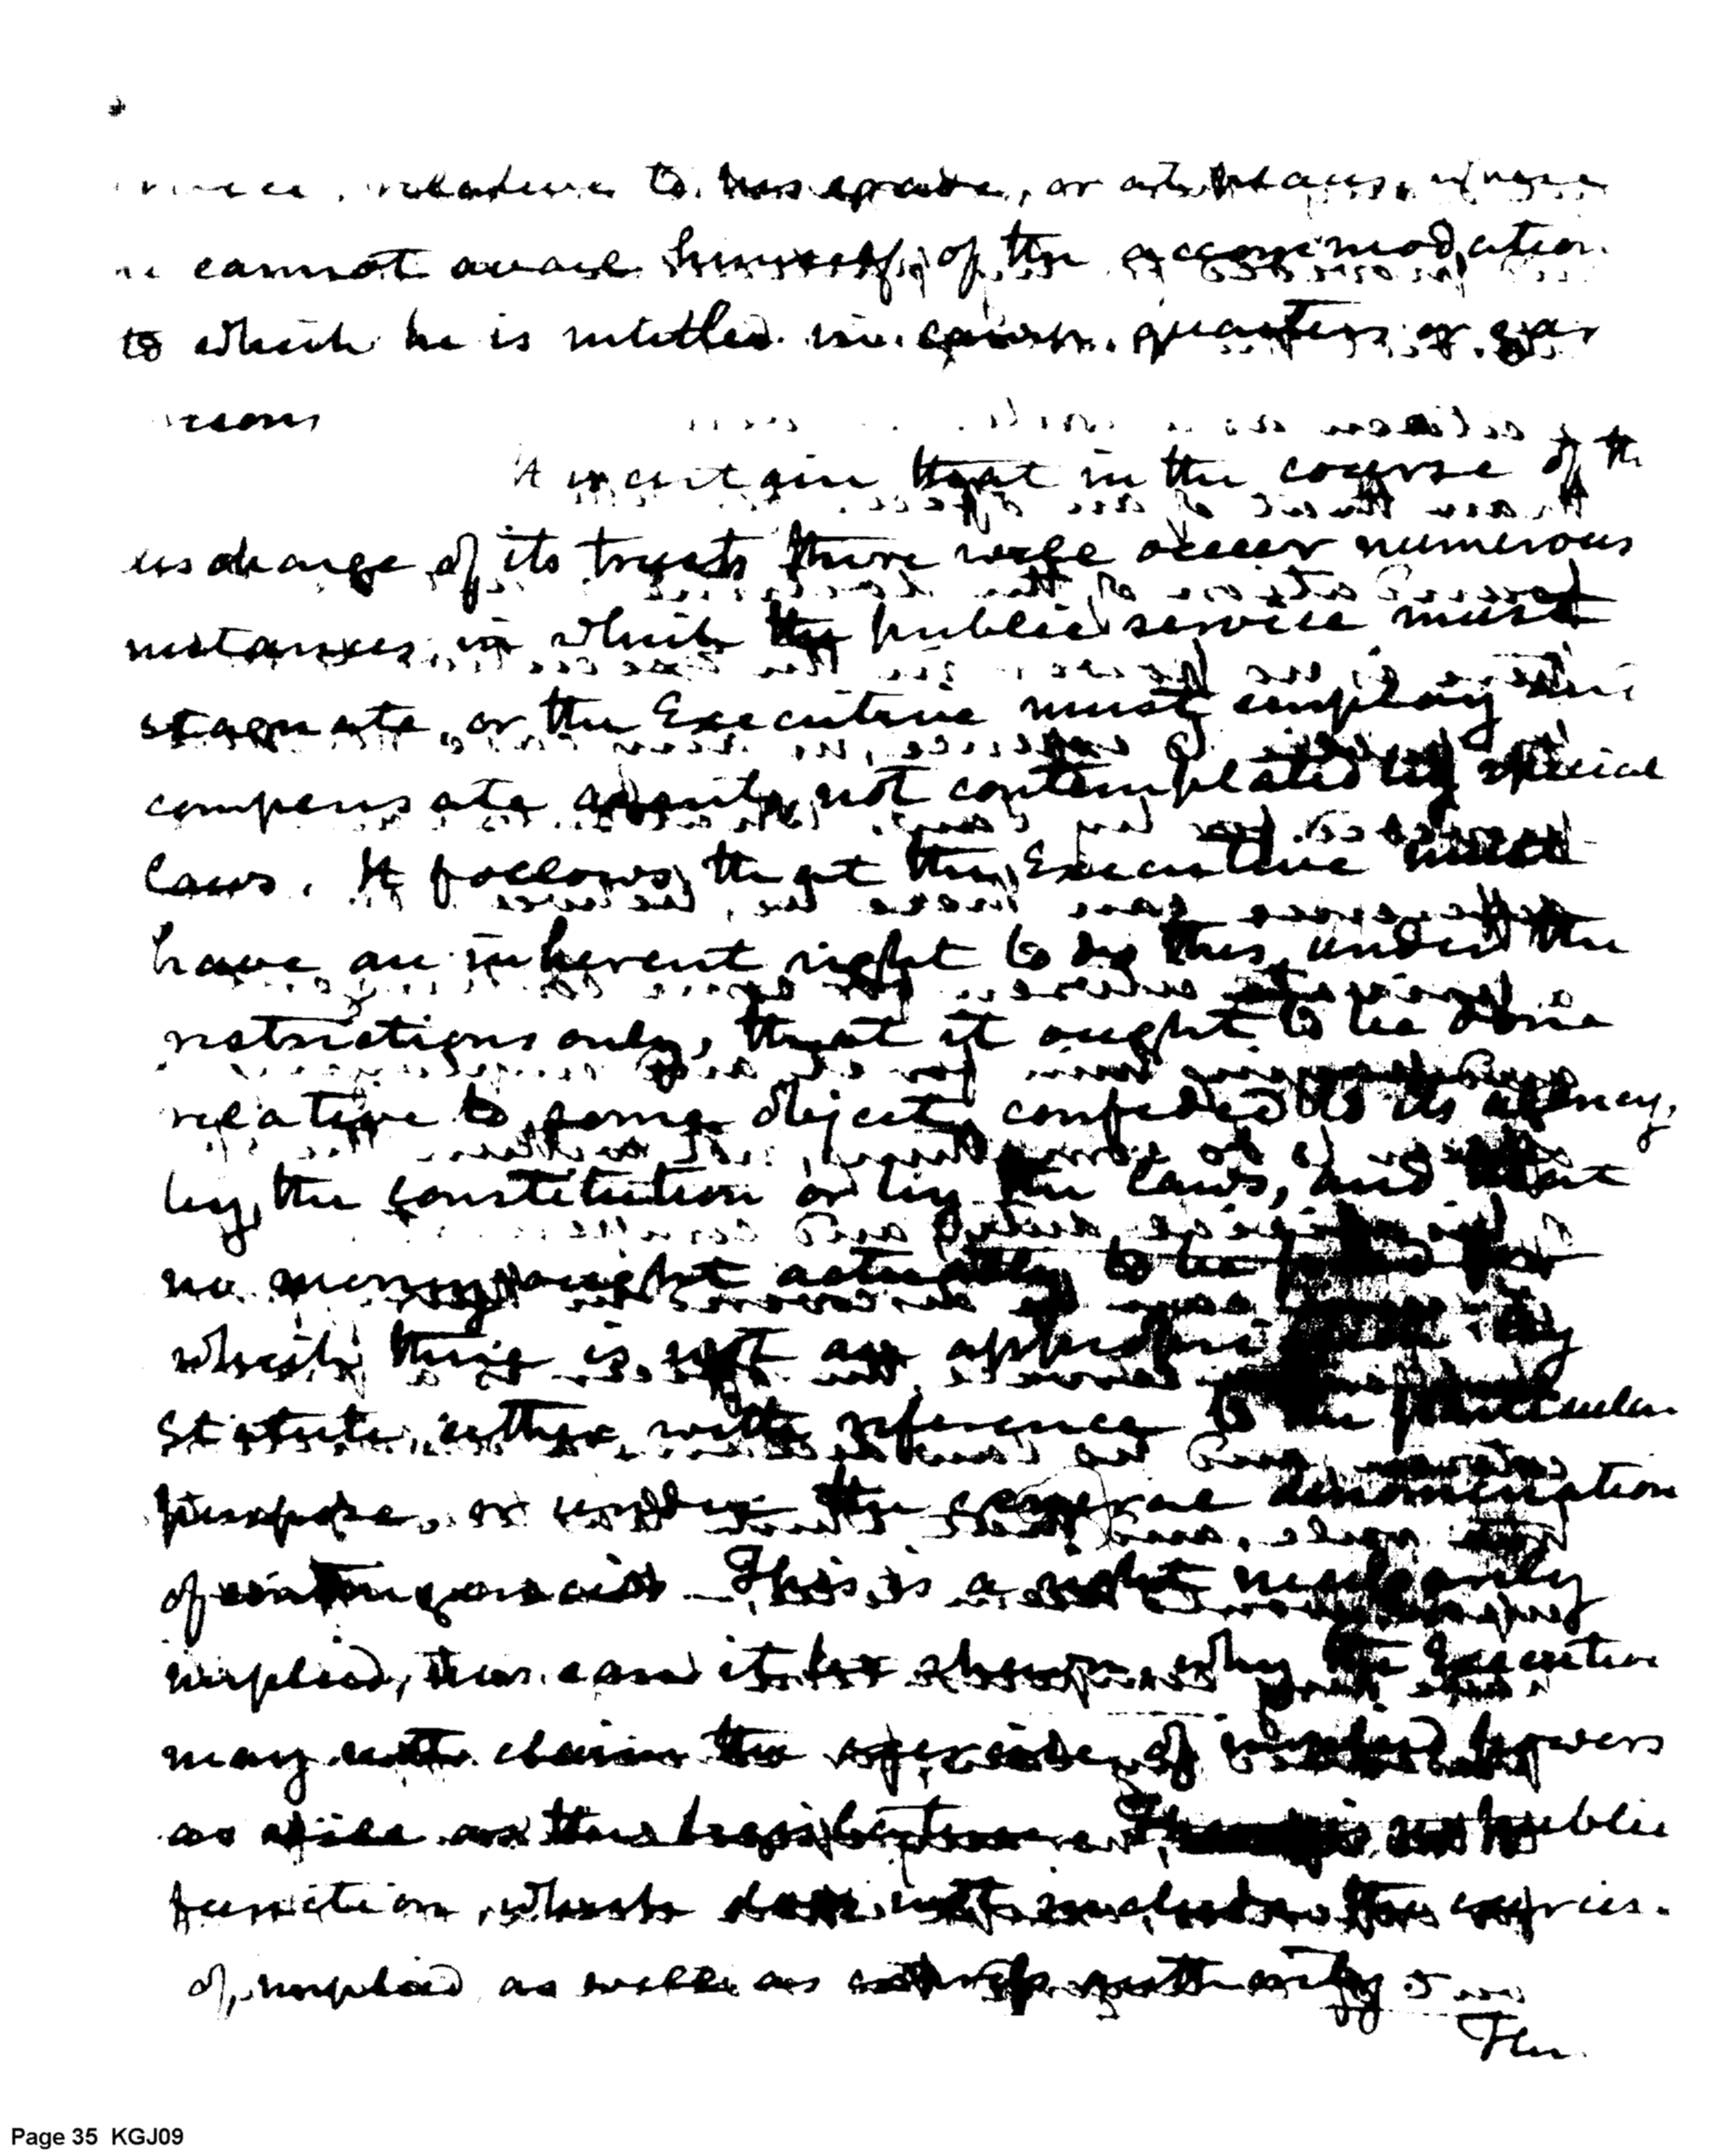 relative to his grade, or at places, where
he cannot avail himself of the accommodation
to which he is intitled in camp, quarters or gar
risons
It is certain that in the course of th
discharge of its trusts there will occur numerous
instances in which the public service must
stagnate, or the Executive must employ and
compensate agents not contemplated by special
laws. It follows that the Executive must
have an inherent right to do this, under the
restrictions only, that it ought to be done
relative to some object confided to its agency,
by the constitution or by the laws, and that
no money ought actually to be for
which there is not an appropriation by
statute, either with reference to the particular
purpose, or under the general denomination
of contingencies. This is a right necessarily
implied, nor can it be shown, why the Executive
may not claim the exercise of implied powers
as well as the legislature. There is no public
function, which does not include the exercise
of implied as well as authority
The
Page 35 KGJ09